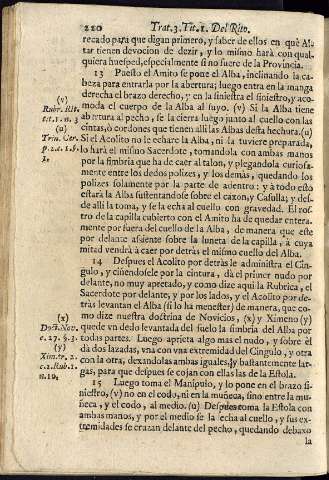 220 Trat.3.Tit.1. Del Rito.
recado para que digan primero, y saber de ellos en què Al-
tar tienen devocion de dezir, y lo mismo harà con qual-
quiera huesped, especialmente si no fuere de la Provincia.
13 Puesto el Amito se pone el Alba, inclinando la ca-
beza para entrarla por la abertura; luego entra en la manga
derecha el brazo derecho, y en la siniestra el siniestro, y aco-
(v)
Rubr. Rit.
tit.1. n.3
(u)
moda el cuerpo de la Alba al suyo. (v) Si la Alba tiene
abertura al pecho, se la cierra luego junto al cuello con las
cintas, ò cordones que tienen alli las Albas desta hechura. (u)
Si el Acolito no le echare la Alba, ni la tuviere preparada,
lo harà el mismo Sacerdote, tomandola con ambas manos
por la fimbria que ha de caer al talon, y plegandola curiosa-
mente entre los dedos polizes, y los demàs, quedando los
polizes solamente por la parte de adentro: y à todo esto
estarà la Alba sustentandose sobre el cajon, y Casulla; y des-
de alli la toma, y se la echa al cuello con gravedad. El ros-
tro de la capilla cubierto con el Amito ha de quedar entera-
mente por fuera del cuello de la Alba, de manera que este
por delante assiente sobre la luneta de la capilla, à cuya
mitad vendrà à caer por detràs el mismo cuello del Alba.
14 Despues el Acolito por detràs le administra el Cin-
gulo, y ciñendosele por la cintura, dà el primer nudo por
delante, no muy apretado, y como dize aqui la Rubrica, el
Sacerdote por delante, y por los lados, y el Acolito por de-
tràs levantan el Alba (si lo ha menester) de manera, que co-
(x)
Doct. Nov.
c.27. §.3.
(y)
Xim. tr. 2.
c.2. Rub.1.
n.10.
mo dize nuestra doctrina de Novicios, (x) y Ximeno (y)
quede vn dedo levantada del suelo la fimbria del Alba por
todas partes. Luego aprieta algo mas el nudo, y sobre èl
dà dos lazadas, vna con vna extremidad del Cingulo, y otra
con la otra, dexandolas ambas iguales, y bastantemente lar-
gas, para que despues se cojan con ellas las de la Estola.
15 Luego toma el Manipulo, y lo pone en el brazo si-
niestro, (v) no en el codo, ni en la muñeca, sino entre la mu-
ñeca, y el codo, al medio. (u) Despues toma la Estola con
ambas manos, y por el medio se la echa al cuello, y sus ex-
tremidades se cruzan delante del pecho, quedando debaxo
la